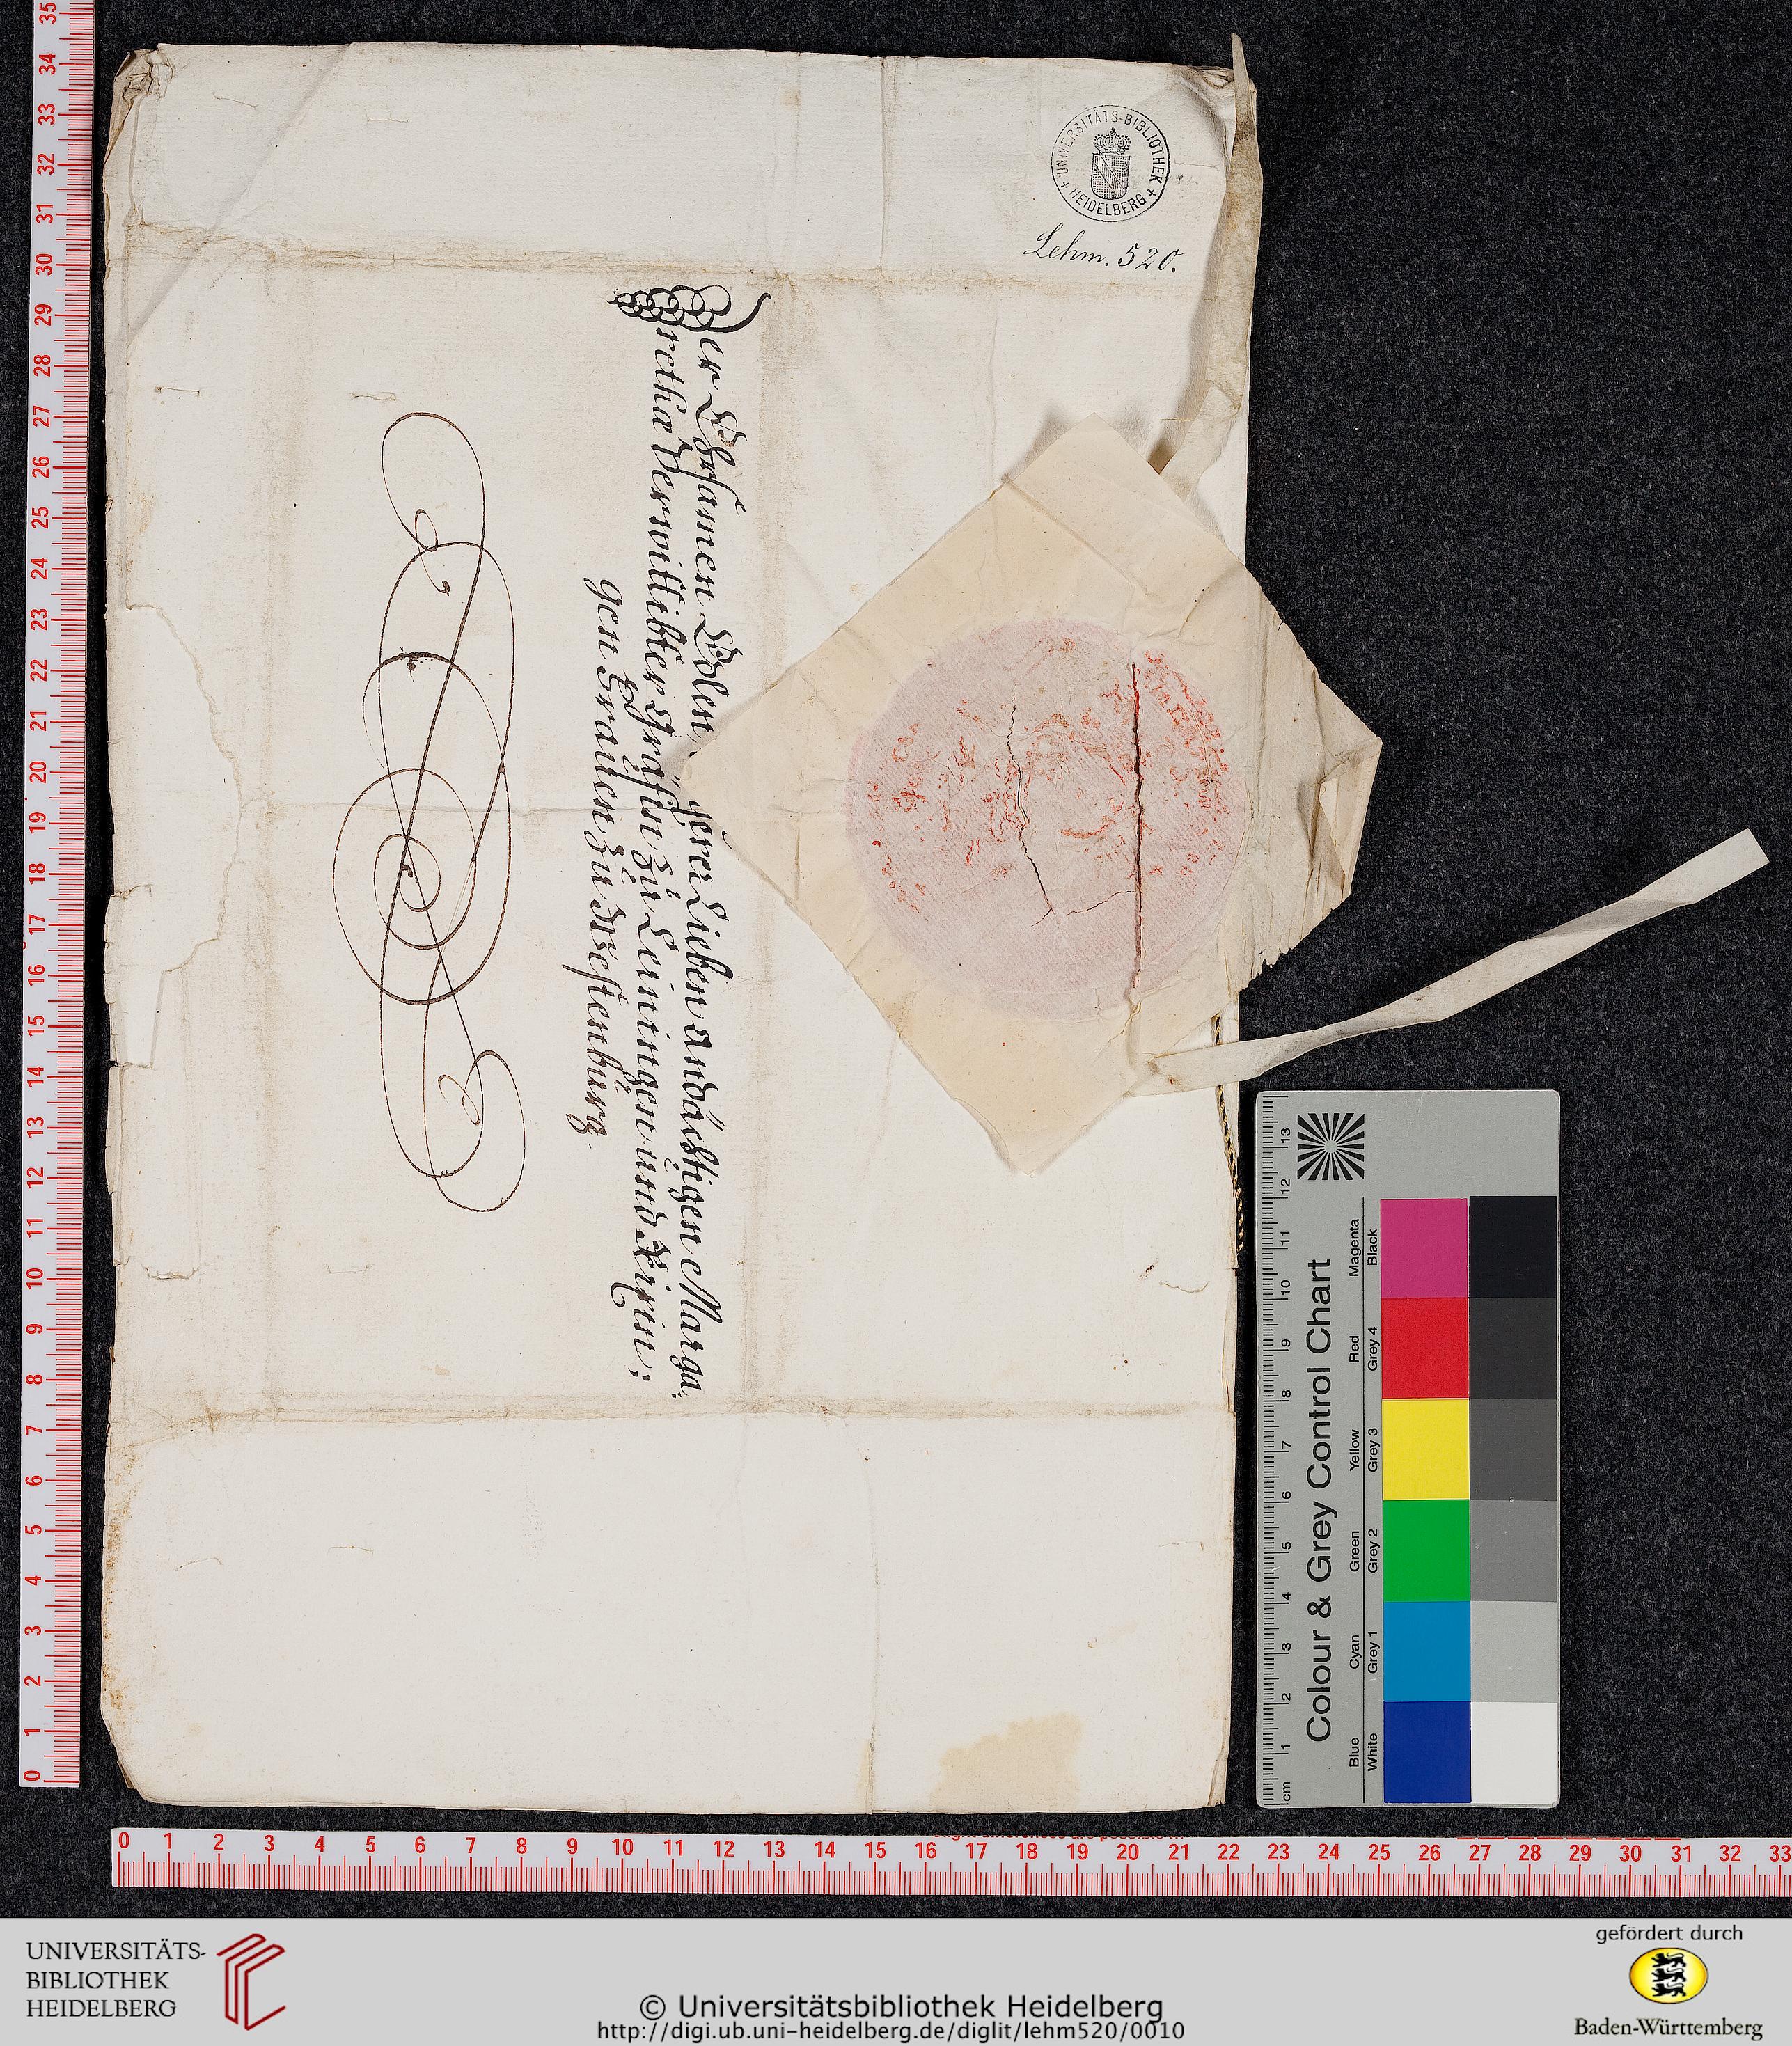 UNIVERSITÄTS-BIBLIOTHEK
HEIDELBERG
Lehm. 520.
Der Ehrsamen Edlen, Lieben andächtigen Marga:
rethæ Verwittibter gräfin zu Leiningen und Dixin;
gen Frauen zu
Colour & Grey Control Chart
Blue Cyan Green Yellow Red Magenta
White Grey 1 Grey 2 Grey 3 Grey 4 Black
cm 1 2 3 4 5 6 7 8 9 10 11 12 13
35
34
33
32
31
30
29
28
27
26
25
24
23
22
21
20
19
18
17
16
15
14
13
12
11
10
9
8
7
6
5
4
3
2
1
0
0 1 2 3 4 5 6 7 8 9 10 11 12 13 14 15 16 17 18 19 20 21 22 23 24 25 26 27 28 29 30 31 32 33
UNIVERSITÄTS-
BIBLIOTHEK
HEIDELBERG
© Universitätsbibliothek Heidelberg
http://digi.ub.uni-heidelberg.de/diglit/lehm520/0010
gefördert durch
Baden-Württemberg